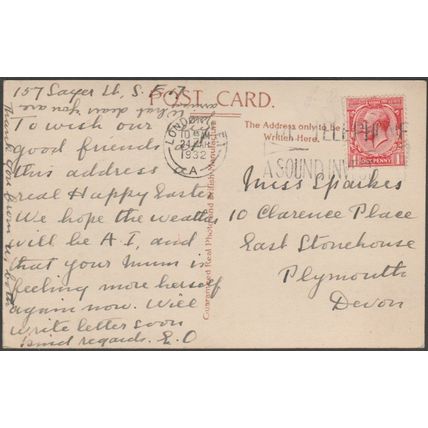 157 Sayer St, S.E.17
POST CARD.
what dear you are
Thank you
To wish our
good friends
this address a
real Happy Easter
We hope the weather
will be A.I, and
that your Mum is
feeling more herself
again now. Will
write letter soon
kind regards. E.O
LONDON
24 MAR
1932
A
Guaranteed Real Photograph British Manufacture
The Address only to be
Written Here.
TELEPHONE
A SOUND INV
ONE PENNY
Miss Sparkes
10 Clarence Place
East Stonehouse
Plymouth
Devon